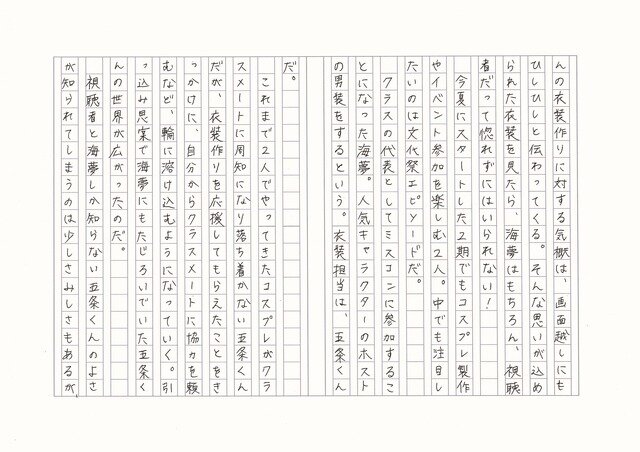 んの衣装作りに対する気概は、画面越しにも
ひしひしと伝わってくる。そんな思いが込め
られた衣装を見たら、海夢はもちろん、視聴
者だって惚れずにはいられない！
今夏にスタートした２期でもコスプレ製作
やイベント参加を楽しむ２人。中でも注目し
たいのは文化祭エピソードだ。
クラスの代表としてミスコンに参加するこ
とになった海夢。人気キャラクターのホスト
の男装をするという。衣装担当は、五条くん
だ。
これまで２人でやってきたコスプレがクラ
スメートに周知になり落ち着かない五条くん
だが、衣装作りを応援してもらえたことをき
っかけに、自分からクラスメートに協力を頼
むなど、輪に溶け込むようになっていく。引
っ込み思案で海夢にもたじろいでいた五条く
んの世界が広がったのだ。
視聴者と海夢しか知らない五条くんのよさ
が知られてしまうのは少しさみしさもあるが、